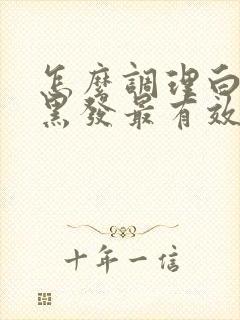 怎麼調理白
黑發最有效
十年一信